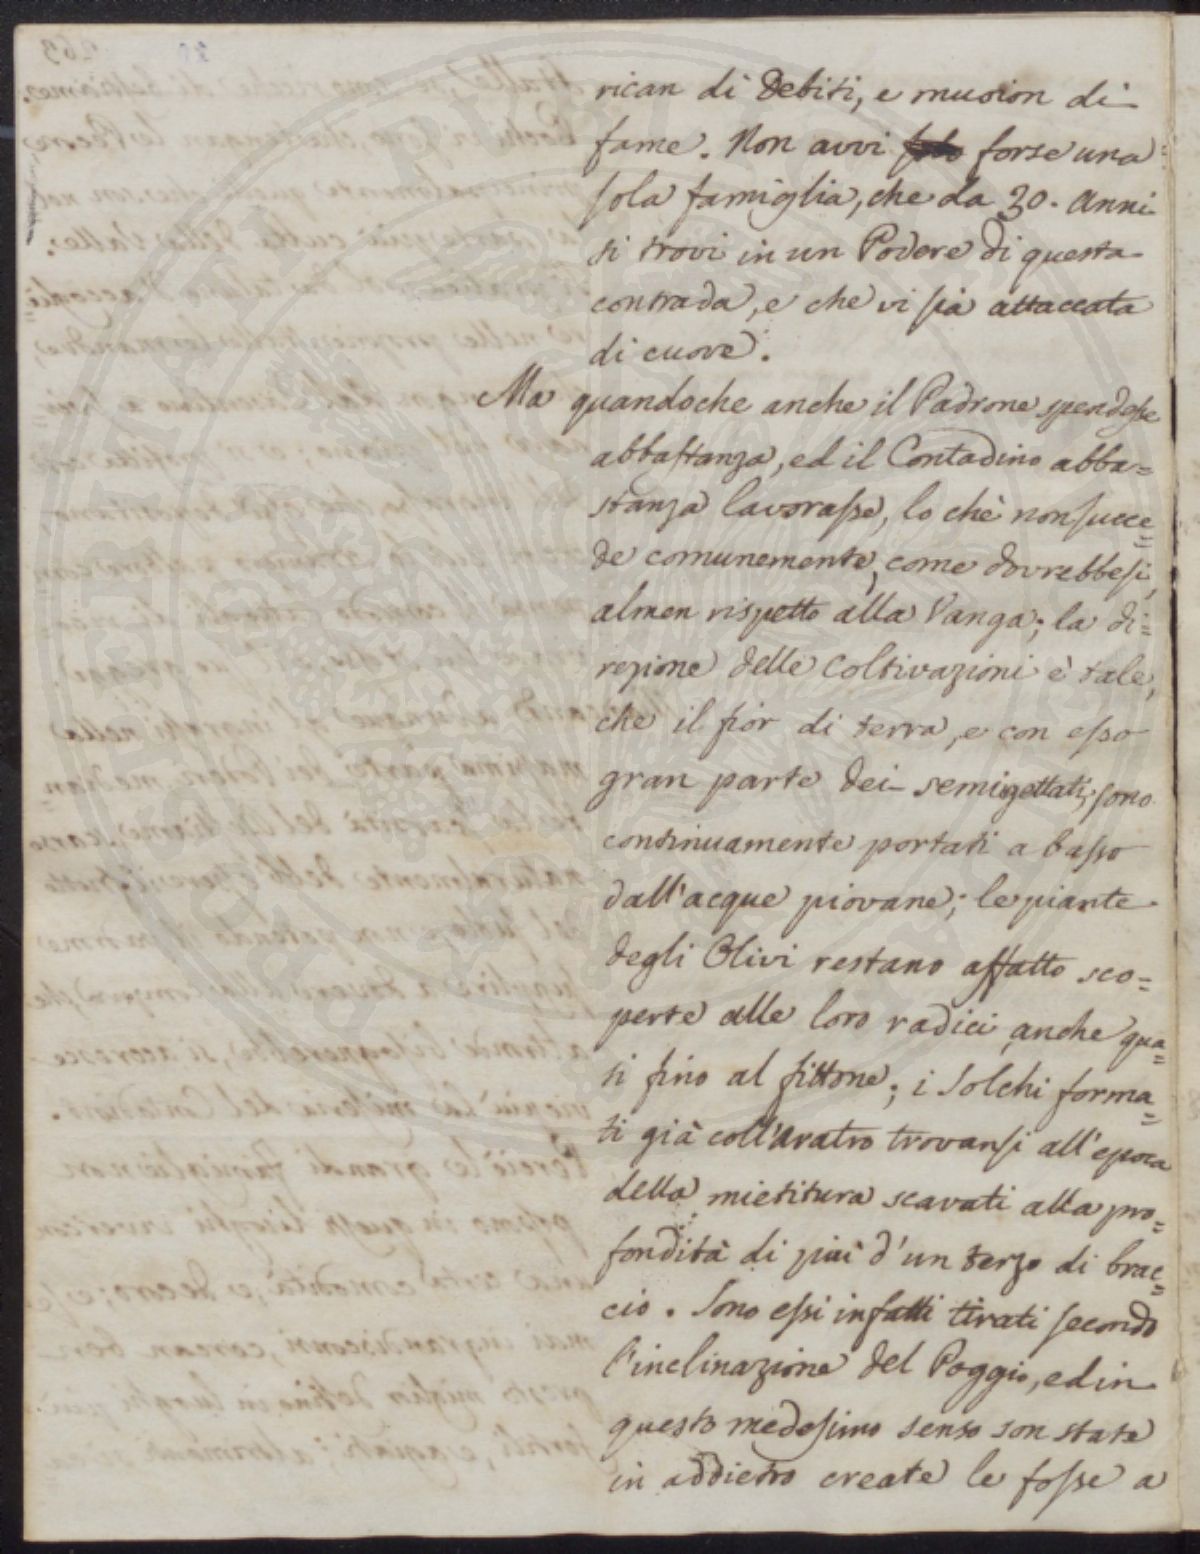 rican di Debiti, e muoion di
fame. Non avvi forse una
sola famiglia, che da 30. Anni
si trovi in un Podere di questa
contrada, e che vi sia attaccata
di cuore.
Ma quandoche anche il Padrone spendesse
abbastanza, ed il Contadino abba=
stanza lavorasse, lo chè non succe=
de comunemente, come dovrebbesi,
almen rispetto alla Vanga; la di=
rezione delle Coltivazioni è tale,
che il fior di terra, e con esso
gran parte dei semi gettati, sono
continuamente portati a basso
dall'acque piovane; le piante
degli Olivi restano affatto sco=
perte alle loro radici anche qua=
si fino al fittone; i Solchi forma=
ti già coll'aratro trovansi all'epoca
della mietitura scavati alla pro=
fondità di più d'un terzo di brac=
cio. Sono essi infatti tirati secondo
l'inclinazione del Poggio, ed in
questo medesimo senso son state
in addietro create le fosse a